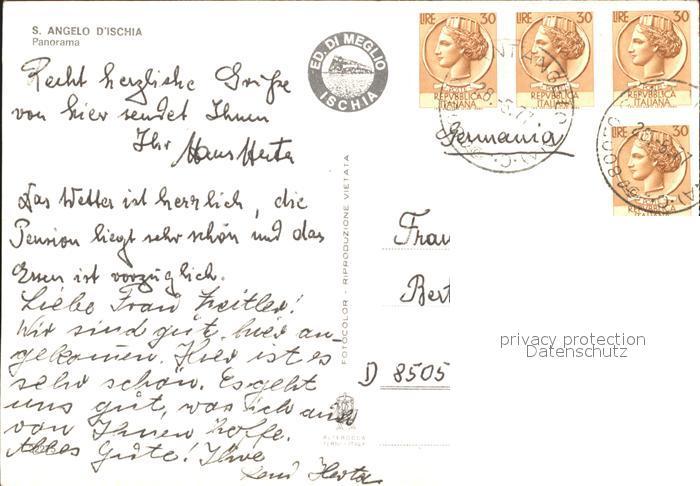 S. ANGELO D'ISCHIA
Panorama
ED. DI MEGLIO
ISCHIA
LIRE 30
REPVBBLICA
ITALIANA
LIRE 30
REPVBBLICA
ITALIANA
LIRE 30
REPVBBLICA
ITALIANA
LIRE 30
Recht herzliche Grüße
von hier sendet Ihnen
Ihr Hans Herta
Das Wetter ist herrlich, die
Pension liegt sehr schön und das
Essen ist vorzüglich.
Liebe Frau
Wir sind gut hier an-
gekommen. Hier ist es
sehr schön. Es geht
uns gut, was ich auch
von Ihnen hoffe.
Alles Gute! Ihre
Herta
FOTOCOLOR - RIPRODUZIONE VIETATA
Germania
Frau
Bert
D 8505
privacy protection
Datenschutz